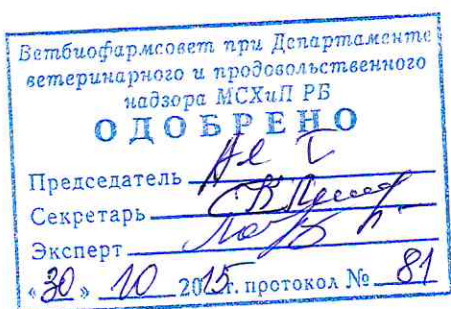 Ветбиофармсовет при Департаменте
ветеринарного и продовольственного
надзора МСХиП РБ
ОДОБРЕНО
Председатель
Секретарь
Эксперт
«30» 10 2015 г. протокол № 81